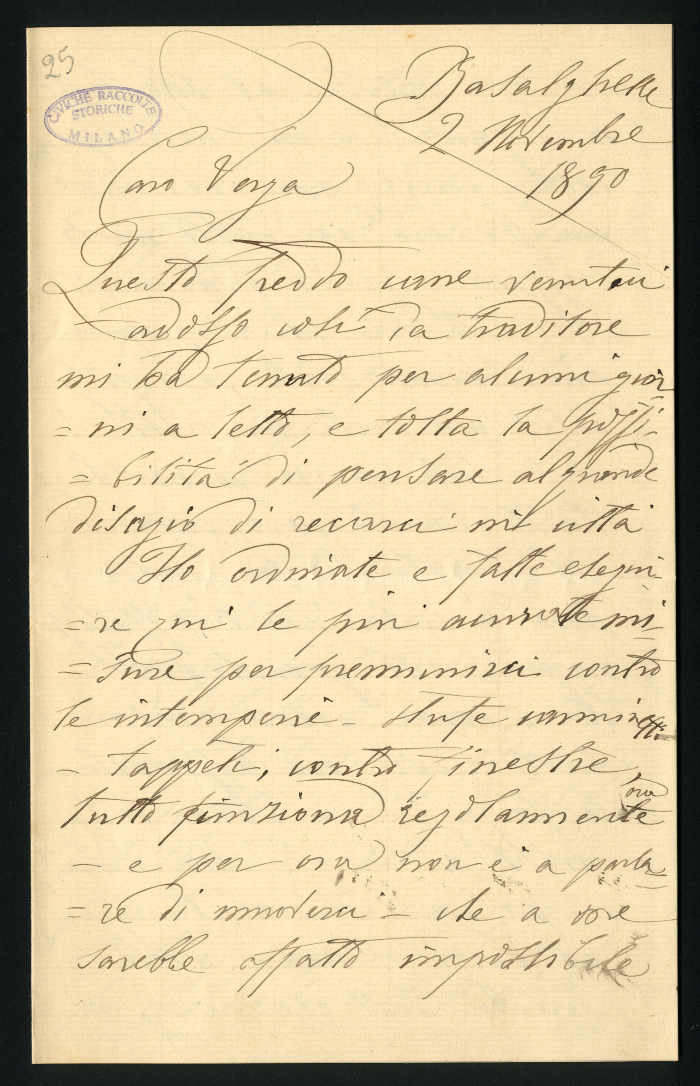 25
CIVICHE RACCOLTE
STORICHE
MILANO
Basalghelle
2 Novembre
1890
Caro Verga
Questo freddo come venutoci
addosso così da traditore
mi ha tenuto per alcuni gior
= ni a letto, e tolta la possi-
= bilità di pensare al grande
disagio di recarci in città
Ho ordinate e fatte esegui-
= re qui le più accurate mi
= sure per premunirci contro
le intemperie - stufe caminetti
- tappeti, contro finestre,
tutto funziona regolarmente
ora
- e per ora non è a parla
= re di muoversi - che a
sarebbe affatto impossibile